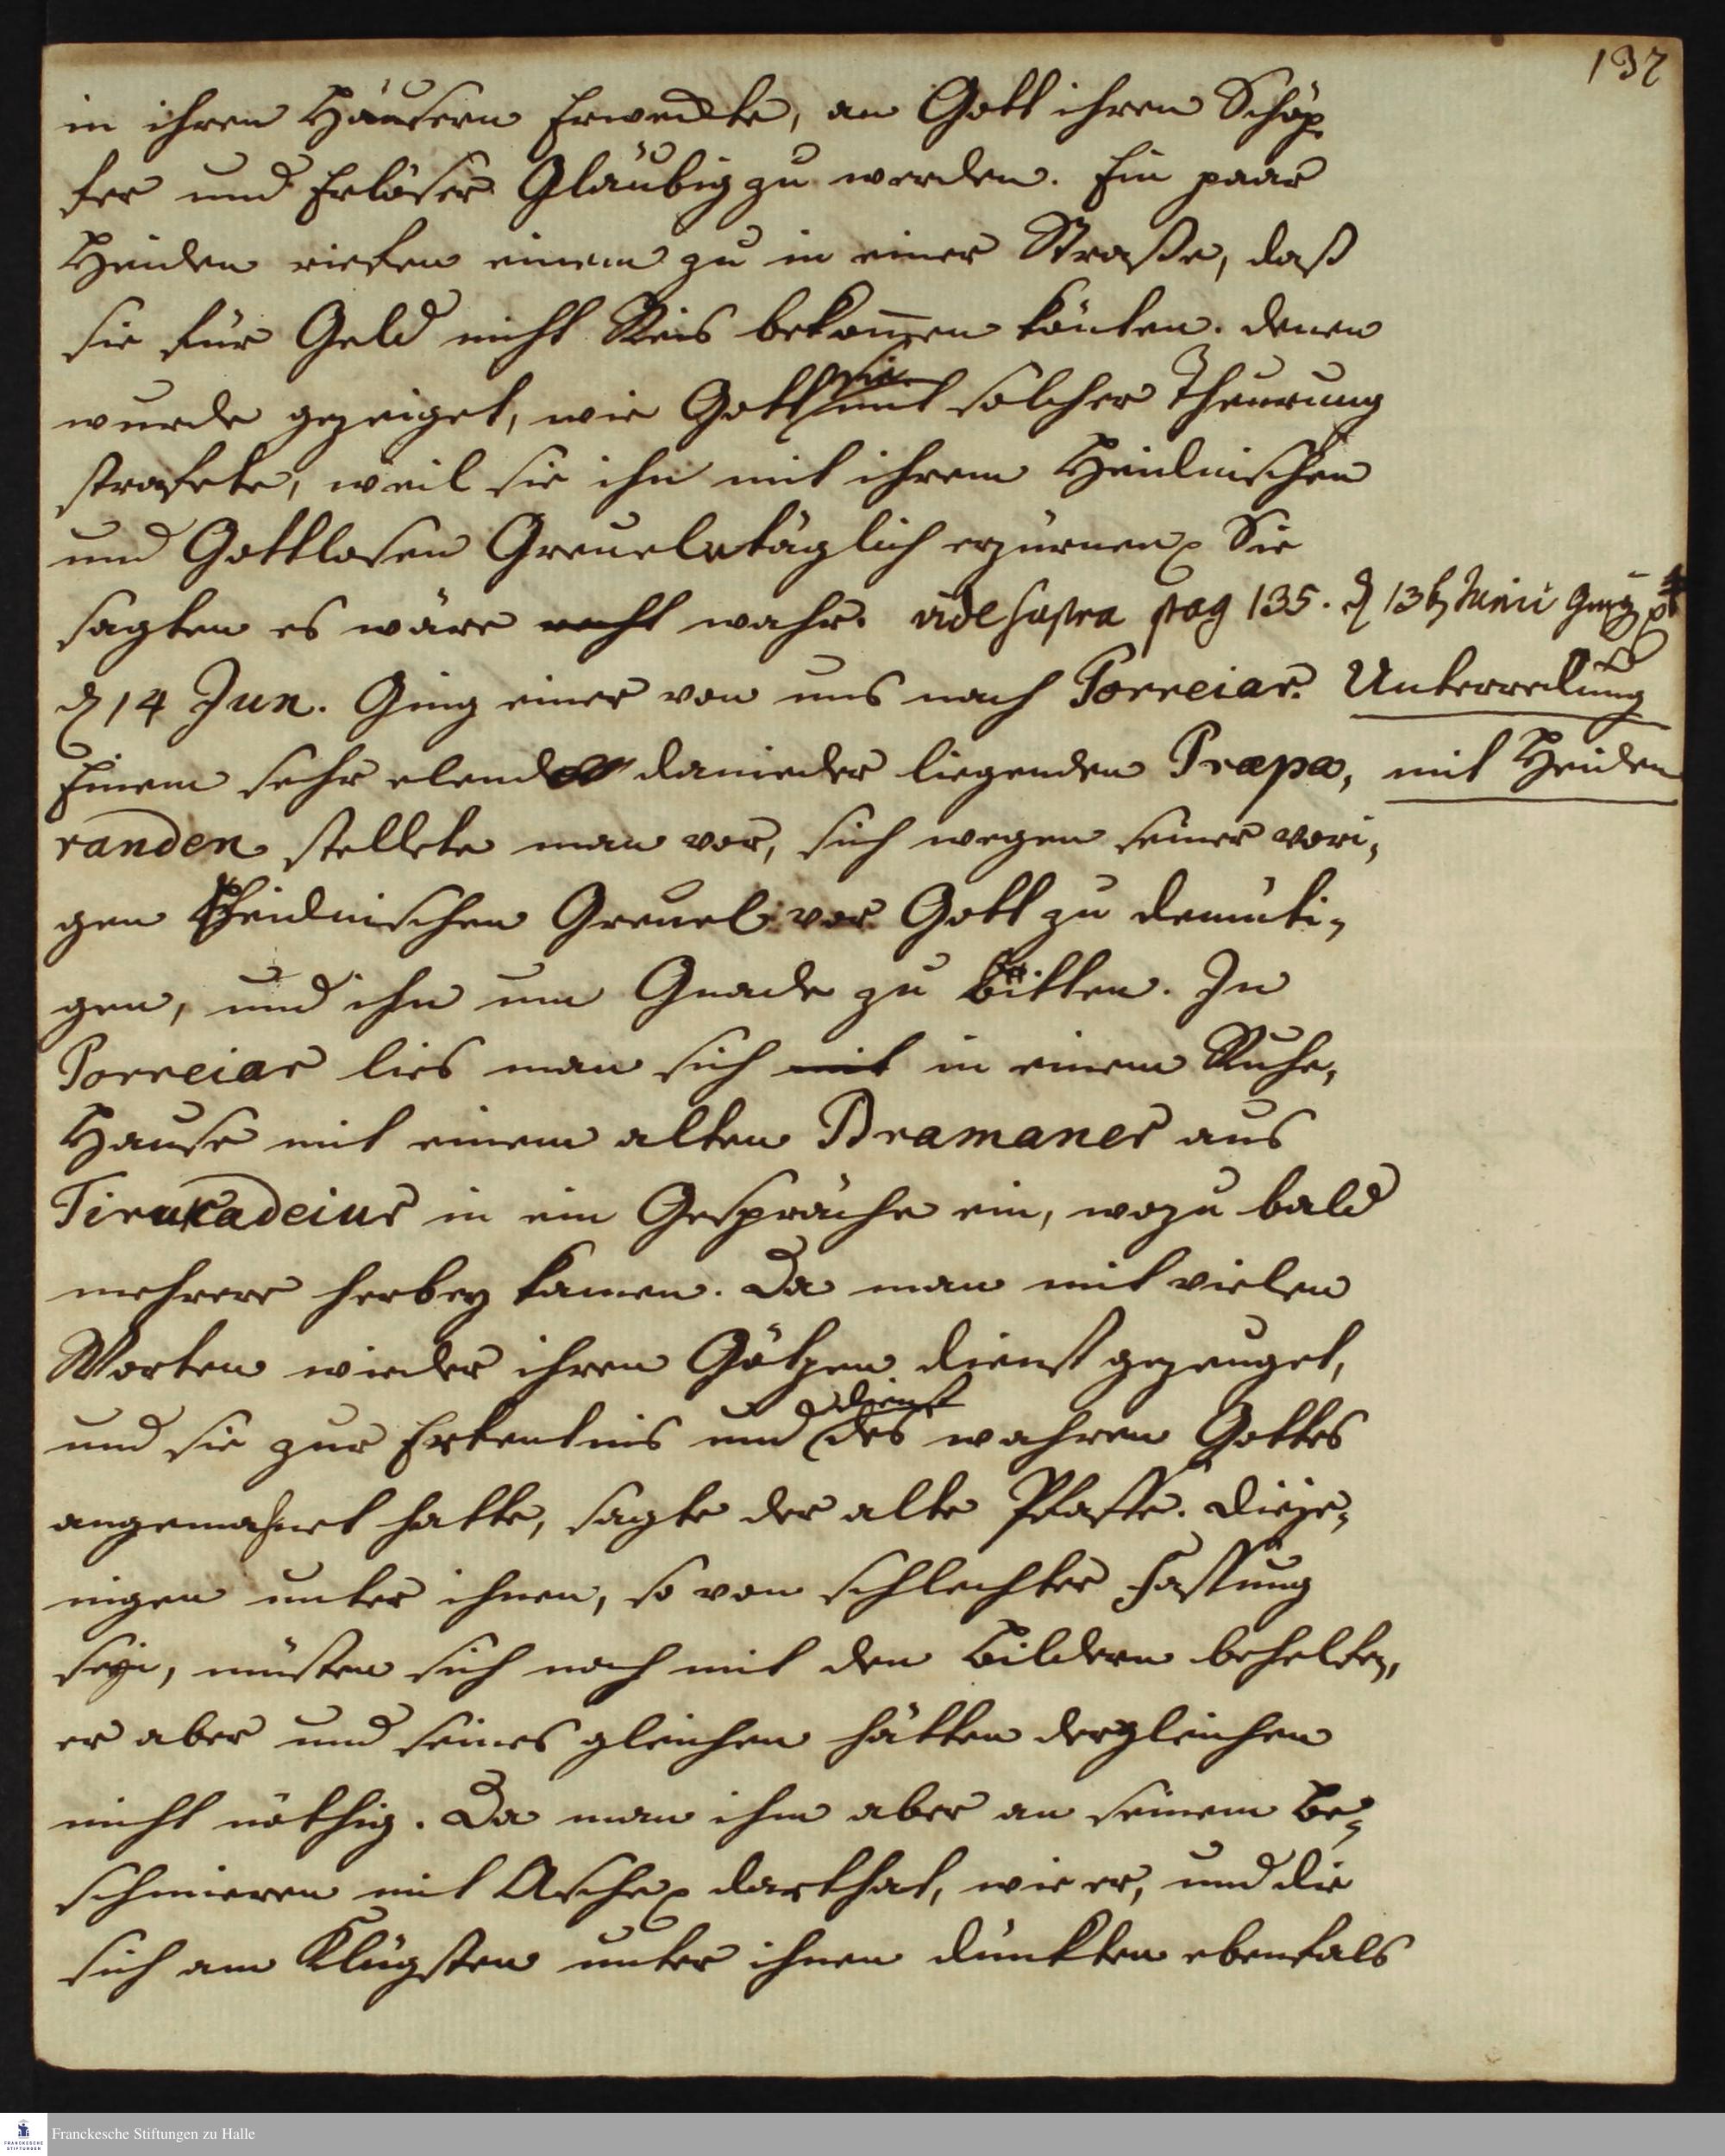 137
in ihren Häusern Erweckte, an Gott ihren Schöp-
fer und Erlöser Gläubig zu werden. Ein paar
Heiden riefen einem zu in einer Straße, daß
sie für Geld nicht Reis bekommen könten. denen
wurde gezeiget, wie Gott sie mit solcher Theurung
strafete, weil sie ihn mit ihrem Heidnischen
und Gottlosen Greuel täglich erzürnen. Sie
sagten es wäre recht wahr. vide supra pag 135. d 13 Junii ging
d 14 Jun. Ging einer von uns nach Porreiar.
Unterredung
mit Heiden
Einem sehr elend danieder liegenden Præpa-
randen stellete man vor, sich wegen seiner vori-
gen Heidnischen Greuel vor Gott zu demüti-
gen, und ihn um Gnade zu bitten. In
Porreiar lies man sich mit in einem Ruhe-
Hause mit einem alten Bramaner aus
Tirukadeiur in ein Gespräche ein, wozu bald
mehrere herbey kamen. Da man mit vielen
Worten wieder ihren Götzen dienst gezeuget,
und sie zur Erkentnis und dienst des wahren Gottes
angemahnet hatte, sagte der alte Pfaffe. Dieje-
nigen unter ihnen, so von schlechter Fassung
seyn, müsten sich noch mit den Bildern behelfen,
er aber und seines gleichen hätten dergleichen
nicht nöthig. Da man ihm aber an seinem Be-
schmieren mit Asche darthat, wie er, und die
sich am Klügsten unter ihnen dünkten ebenfals
Franckesche Stiftungen zu Halle